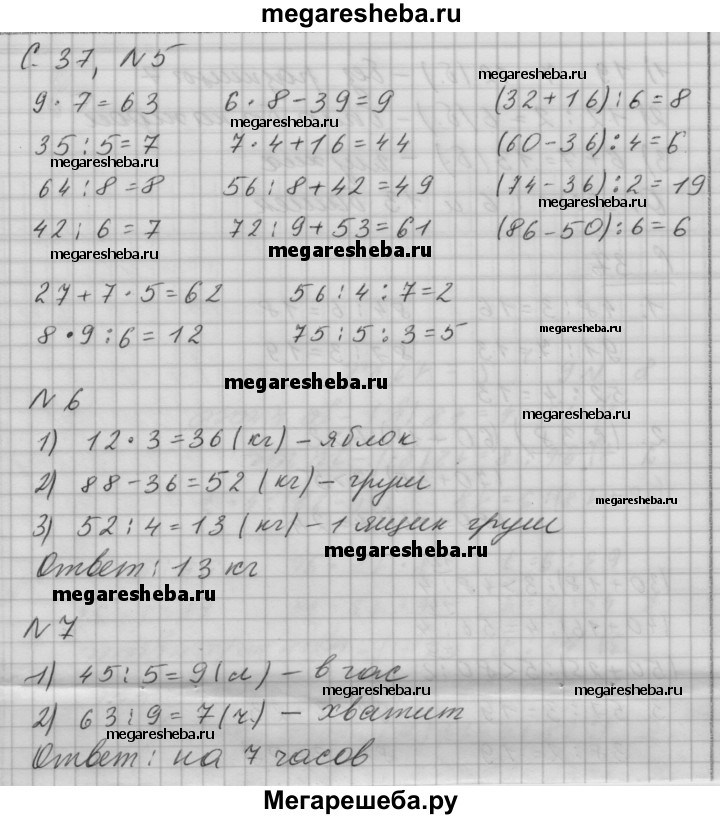 megaresheba.ru
С. 37, N 5
megaresheba.ru
9 · 7 = 63 6 · 8 - 39 = 9 (32 + 16) : 6 = 8
megaresheba.ru
35 : 5 = 7 7 · 4 + 16 = 44 (60 - 36) : 4 = 6
megaresheba.ru megaresheba.ru
64 : 8 = 8 56 : 8 + 42 = 49 (74 - 36) : 2 = 19
megaresheba.ru
42 : 6 = 7 72 : 9 + 53 = 61 (86 - 50) : 6 = 6
megaresheba.ru megaresheba.ru
27 + 7 · 5 = 62 56 : 4 : 7 = 2
8 · 9 : 6 = 12 75 : 5 : 3 = 5
megaresheba.ru
megaresheba.ru
N 6
megaresheba.ru
1) 12 · 3 = 36 (кг) - яблок
2) 88 - 36 = 52 (кг) - груш
megaresheba.ru
3) 52 : 4 = 13 (кг) - 1 ящик груш
megaresheba.ru
Ответ: 13 кг
megaresheba.ru
N 7
1) 45 : 5 = 9 (л) - в час
megaresheba.ru megaresheba.ru
2) 63 : 9 = 7 (ч.) - хватит
megaresheba.ru
Ответ: на 7 часов
Мегарешеба.ру